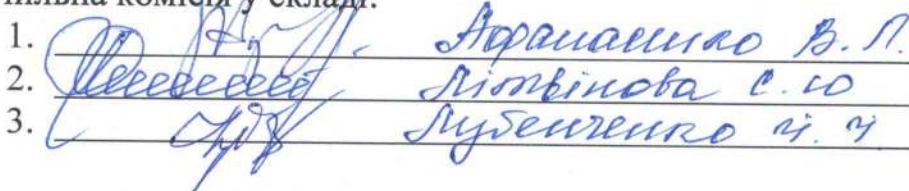 ільна комісія у складі:
1. Афанасенко В. Л.
2. Літвінова С. Ю
3. Лубенченко